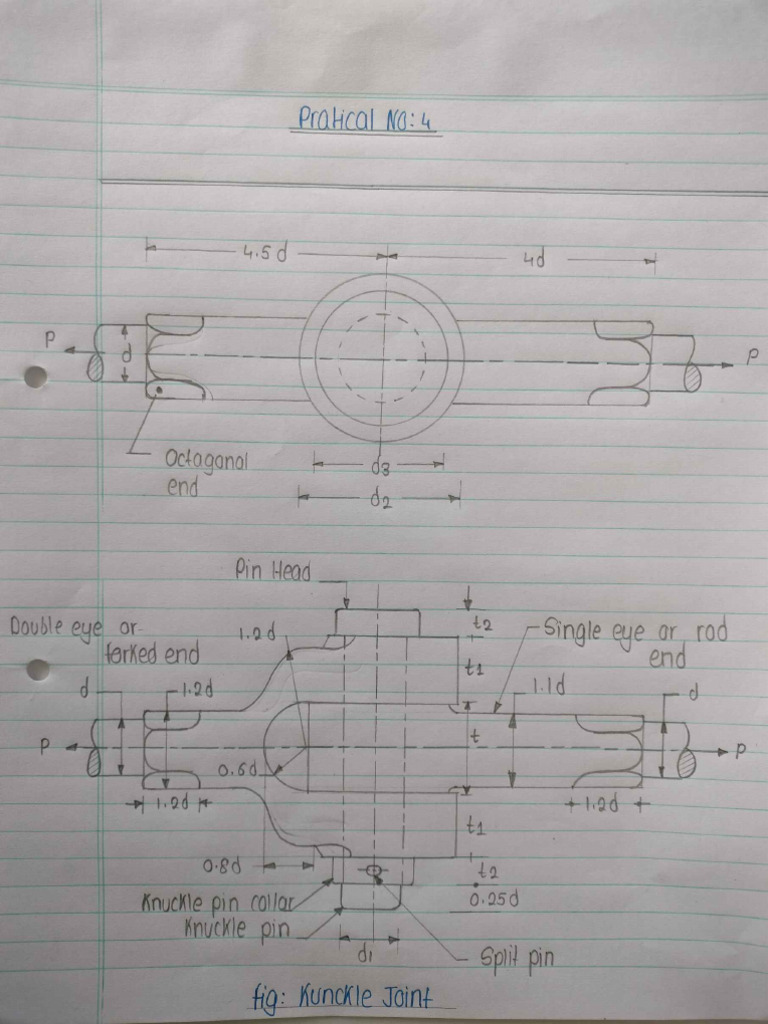 Pratical No: 4
4.5d
4d
P
d
P
Octagonal
end
d3
d2
Pin Head
t2
Double eye or
forked end
1.2d
Single eye or rod
end
t1
d
1.2d
1.1d
d
P
t
P
0.6d
1.2d
1.2d
t1
0.8d
t2
0.25d
Knuckle pin collar
Knuckle pin
d1
Split pin
fig: Kunckle Joint